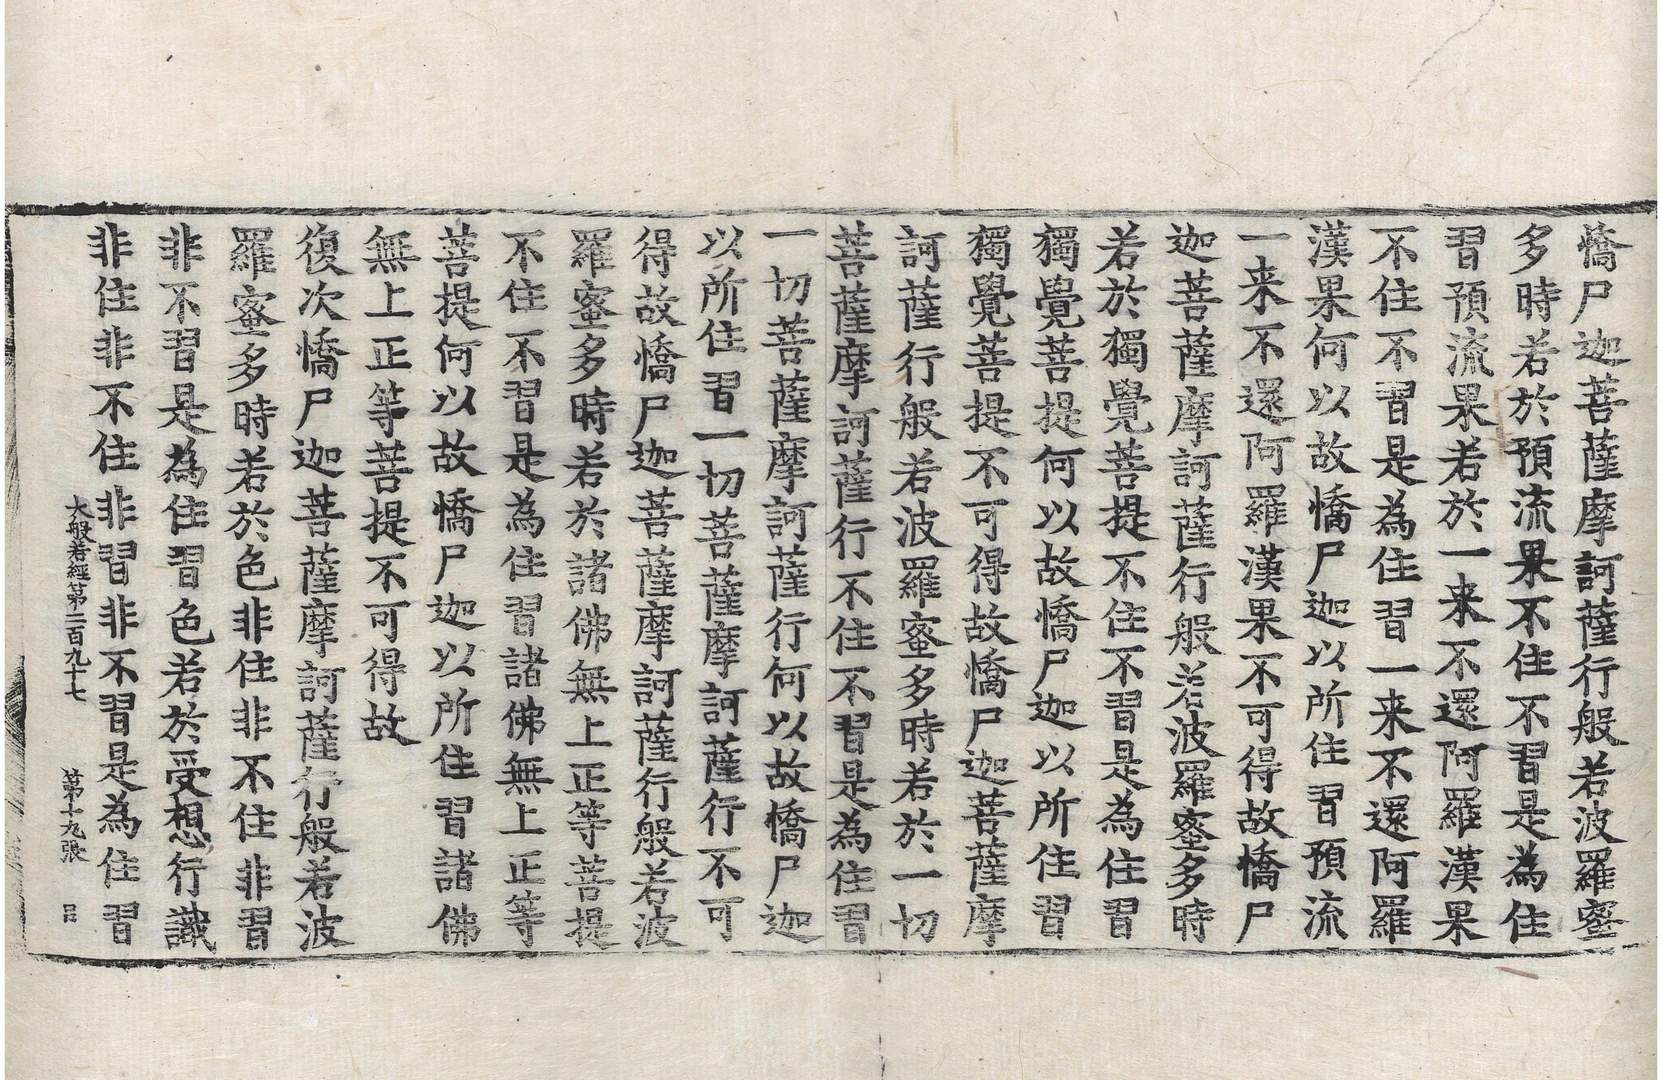 憍尸迦菩薩摩訶薩行般若波羅蜜
多時若於預流果不住不習是為住
習預流果若於一来不還阿羅漢果
不住不習是為住習一来不還阿羅
漢果何以故憍尸迦以所住習預流
一来不還阿羅漢果不可得故憍尸
迦菩薩摩訶薩行般若波羅蜜多時
若於獨覺菩提不住不習是為住習
獨覺菩提何以故憍尸迦以所住習
獨覺菩提不可得故憍尸迦菩薩摩
訶薩行般若波羅蜜多時若於一切
菩薩摩訶薩行不住不習是為住習
一切菩薩摩訶薩行何以故憍尸迦
以所住習一切菩薩摩訶薩行不可
得故憍尸迦菩薩摩訶薩行般若波
羅蜜多時若於諸佛無上正等菩提
不住不習是為住習諸佛無上正等
菩提何以故憍尸迦以所住習諸佛
無上正等菩提不可得故
復次憍尸迦菩薩摩訶薩行般若波
羅蜜多時若於色非住非不住非習
非不習是為住習色若於受想行識
非住非不住非習非不習是為住習
大般若經第二百九十七 第十九張